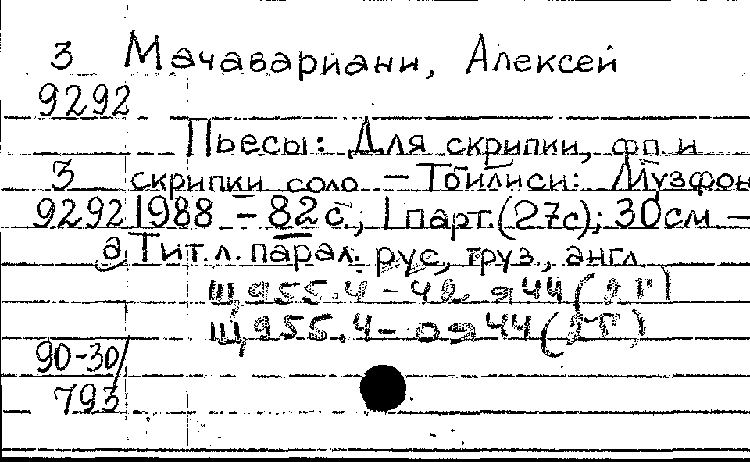 З Мачавариани, Алексей
9292
Пьесы: Для скрипки, фп. и
З скрипки соло. – Тбилиси: Музфон
9292 1988 – 82 с., 1 парт. (27с); 30см –
а Тит. л. парал. рус., груз., англ
Щ955.4-42 я44 (2Г)
Щ955.4-0я44 (2Г)
90-30/
793